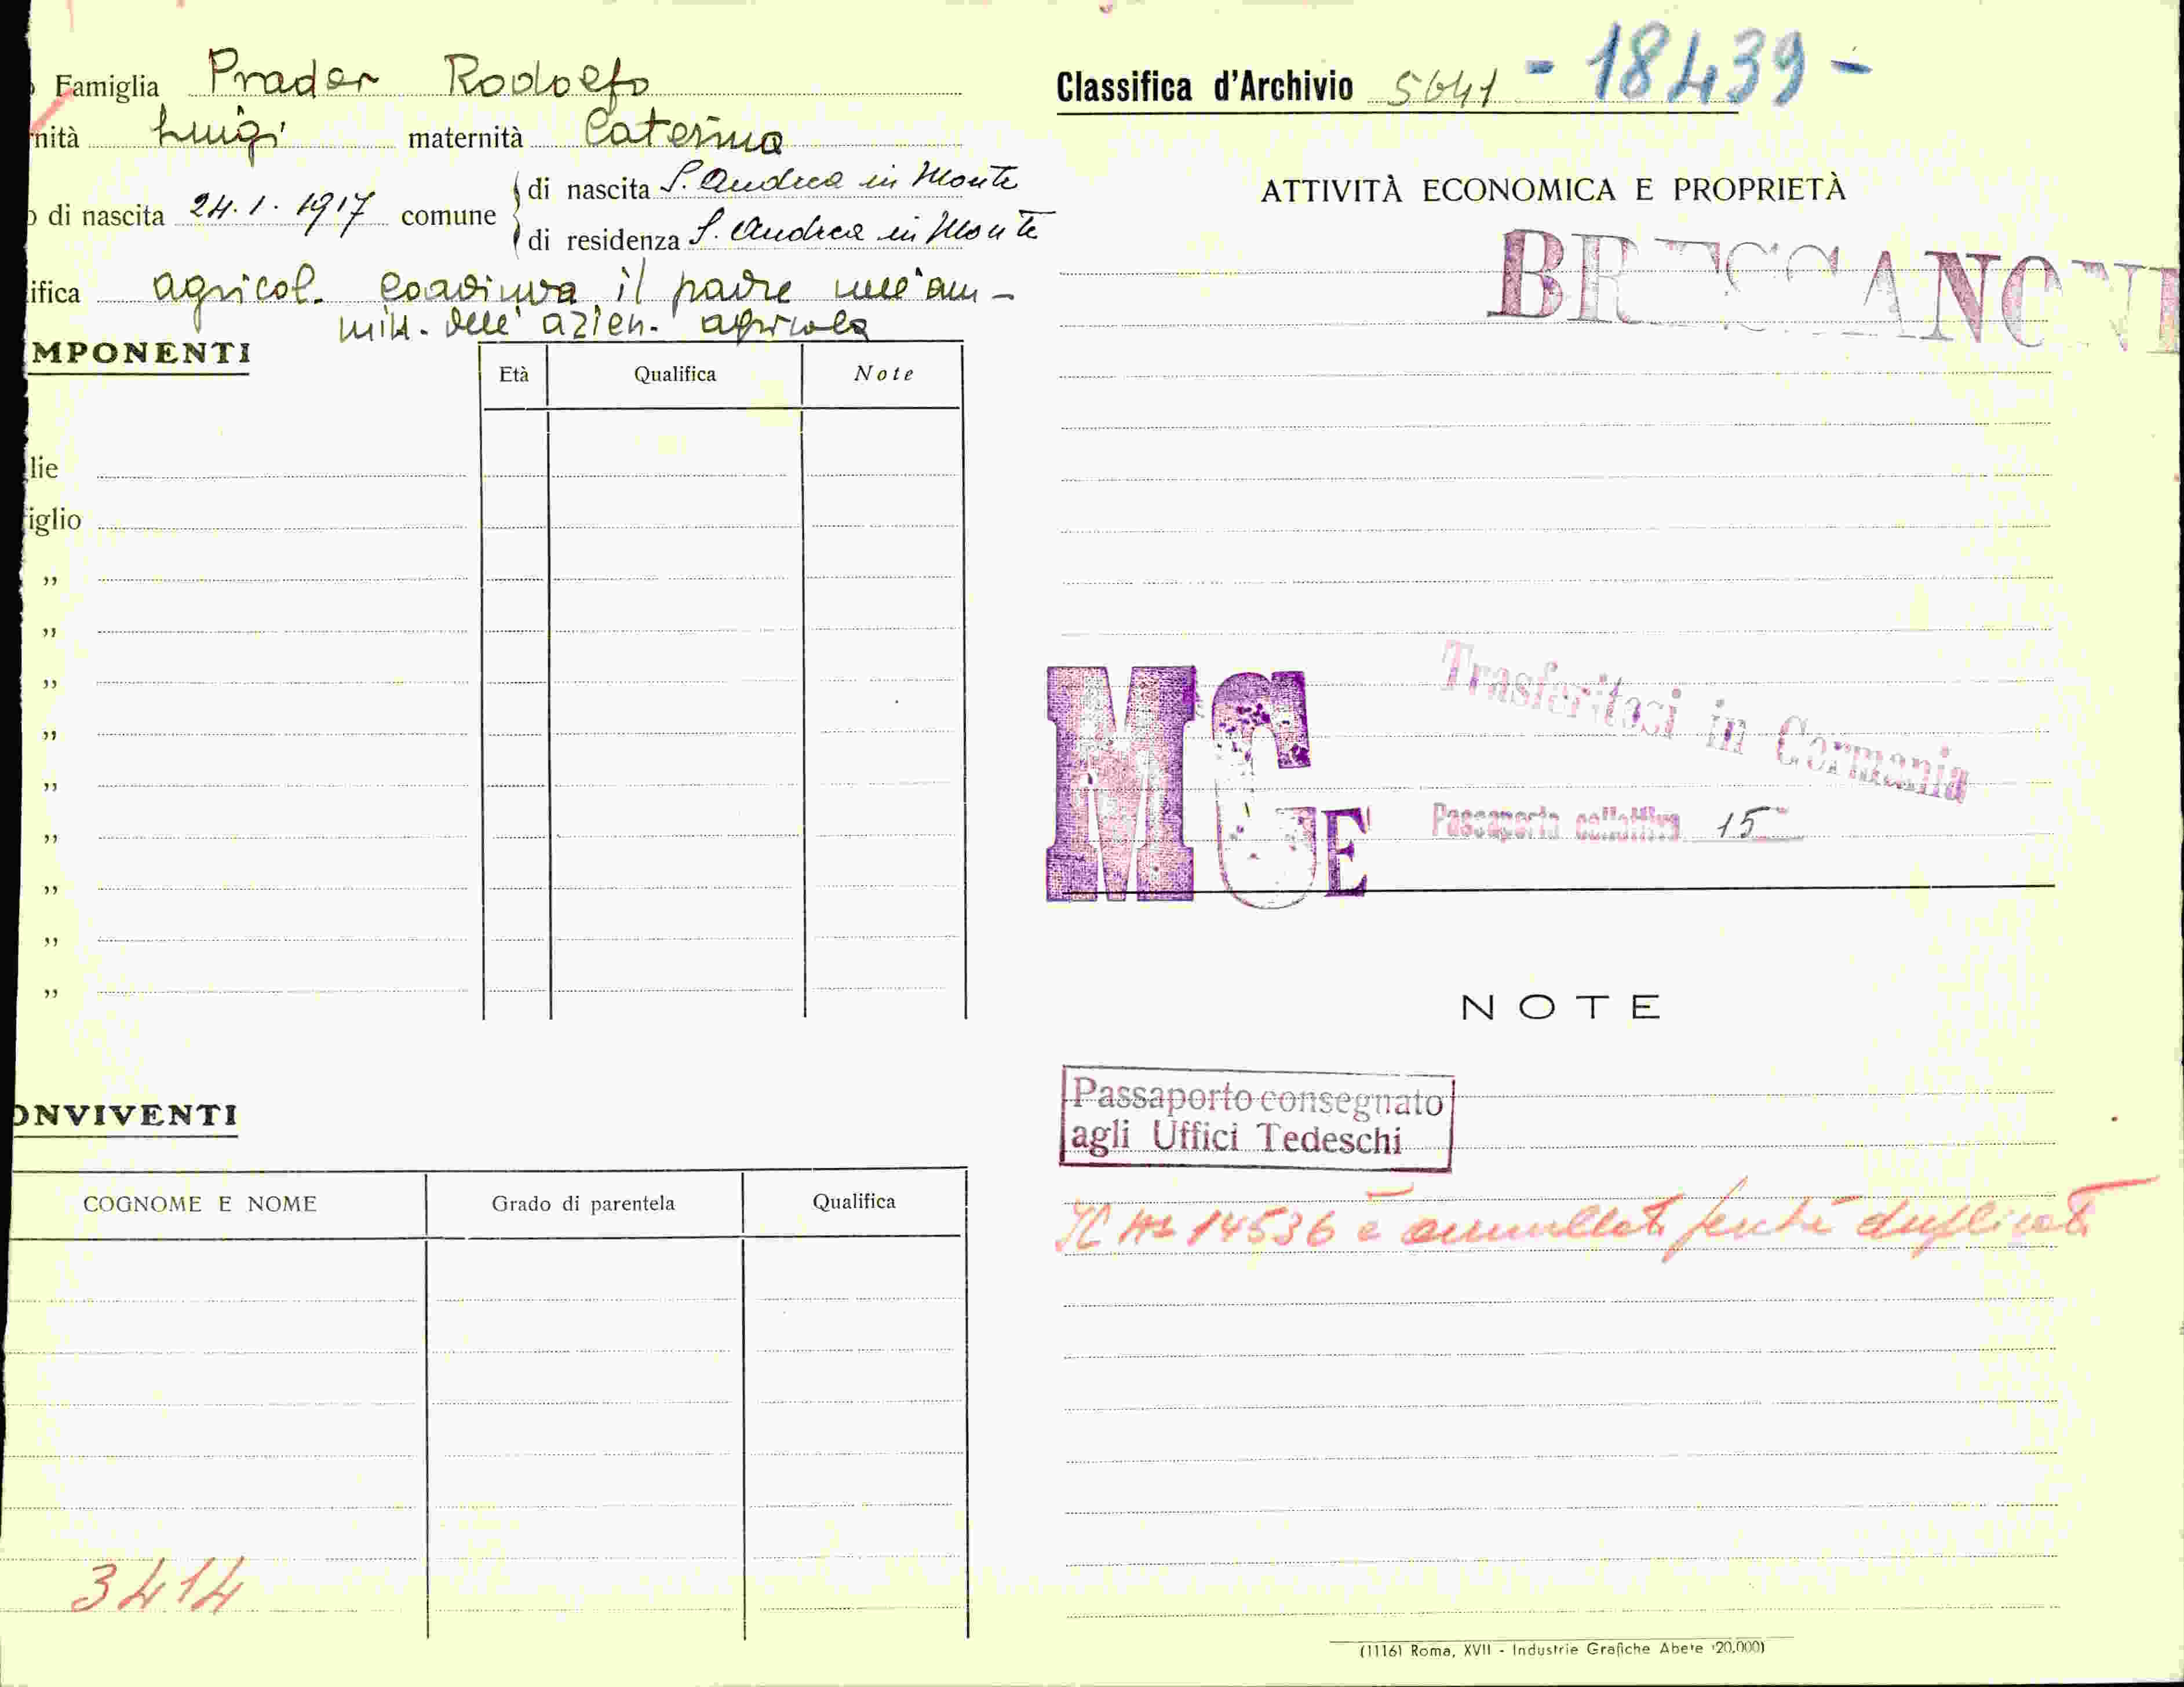 Famiglia Prader Rodolfo
nità Luigi maternità Caterina
di nascita 24.1.1917 comune
di nascita S. Andrea in Monte
di residenza S. Andrea in Monte
ifica agricol. coadiuva il padre nell'am-
min. dell'azien. agricola
MPONENTI
Età Qualifica Note
lie
iglio
„
„
„
„
„
„
„
„
„
ONVIVENTI
COGNOME E NOME Grado di parentela Qualifica
3414
Classifica d'Archivio 5641 - 18439 -
ATTIVITÀ ECONOMICA E PROPRIETÀ
BRESSANONE
Trasferitosi in Germania
MGE
Passaporto collettivo 15
NOTE
Passaporto consegnato
agli Uffici Tedeschi
14536 è annullato perché duplicato
(1116) Roma, XVII - Industrie Grafiche Abete (20.000)